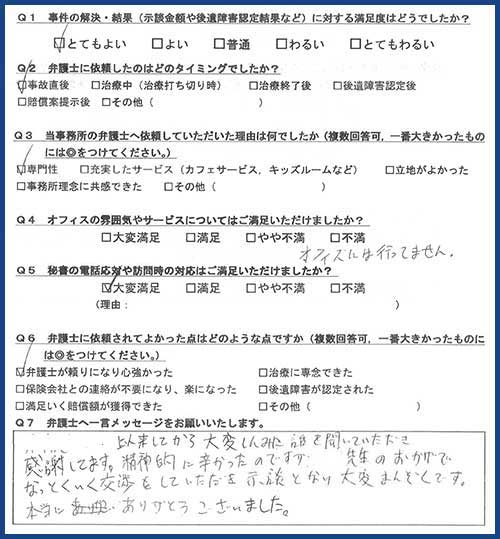 Q1 事件の解決・結果（示談金額や後遺障害認定結果など）に対する満足度はどうでしたか？
□とてもよい □よい □普通 □わるい □とてもわるい
Q2 弁護士に依頼したのはどのタイミングでしたか？
□事故直後 □治療中（治療打ち切り時） □治療終了後 □後遺障害認定後
□賠償案提示後 □その他（ ）
Q3 当事務所の弁護士へ依頼していただいた理由は何でしたか（複数回答可，一番大きかったもの
には◎をつけてください。）
□専門性 □充実したサービス（カフェサービス，キッズルームなど） □立地がよかった
□事務所理念に共感できた □その他（ ）
Q4 オフィスの雰囲気やサービスについてはご満足いただけましたか？
□大変満足 □満足 □やや不満 □不満
オフィスには行ってません。
Q5 秘書の電話応対や訪問時の対応はご満足いただけましたか？
□大変満足 □満足 □やや不満 □不満
（理由： ）
Q6 弁護士に依頼されてよかった点はどのような点ですか（複数回答可，一番大きかったものに
は◎をつけてください。）
□弁護士が頼りになり心強かった □治療に専念できた
□保険会社との連絡が不要になり、楽になった □後遺障害が認定された
□満足いく賠償額が獲得できた □その他（ ）
Q7 弁護士へ一言メッセージをお願いいたします。
大変しんみに話を聞いていただき
感謝してます。精神的に辛かったのですが 先生のおかげで
なっとくいく交渉をしていただき示談となり大変まんぞくです。
本当に ありがとうございました。